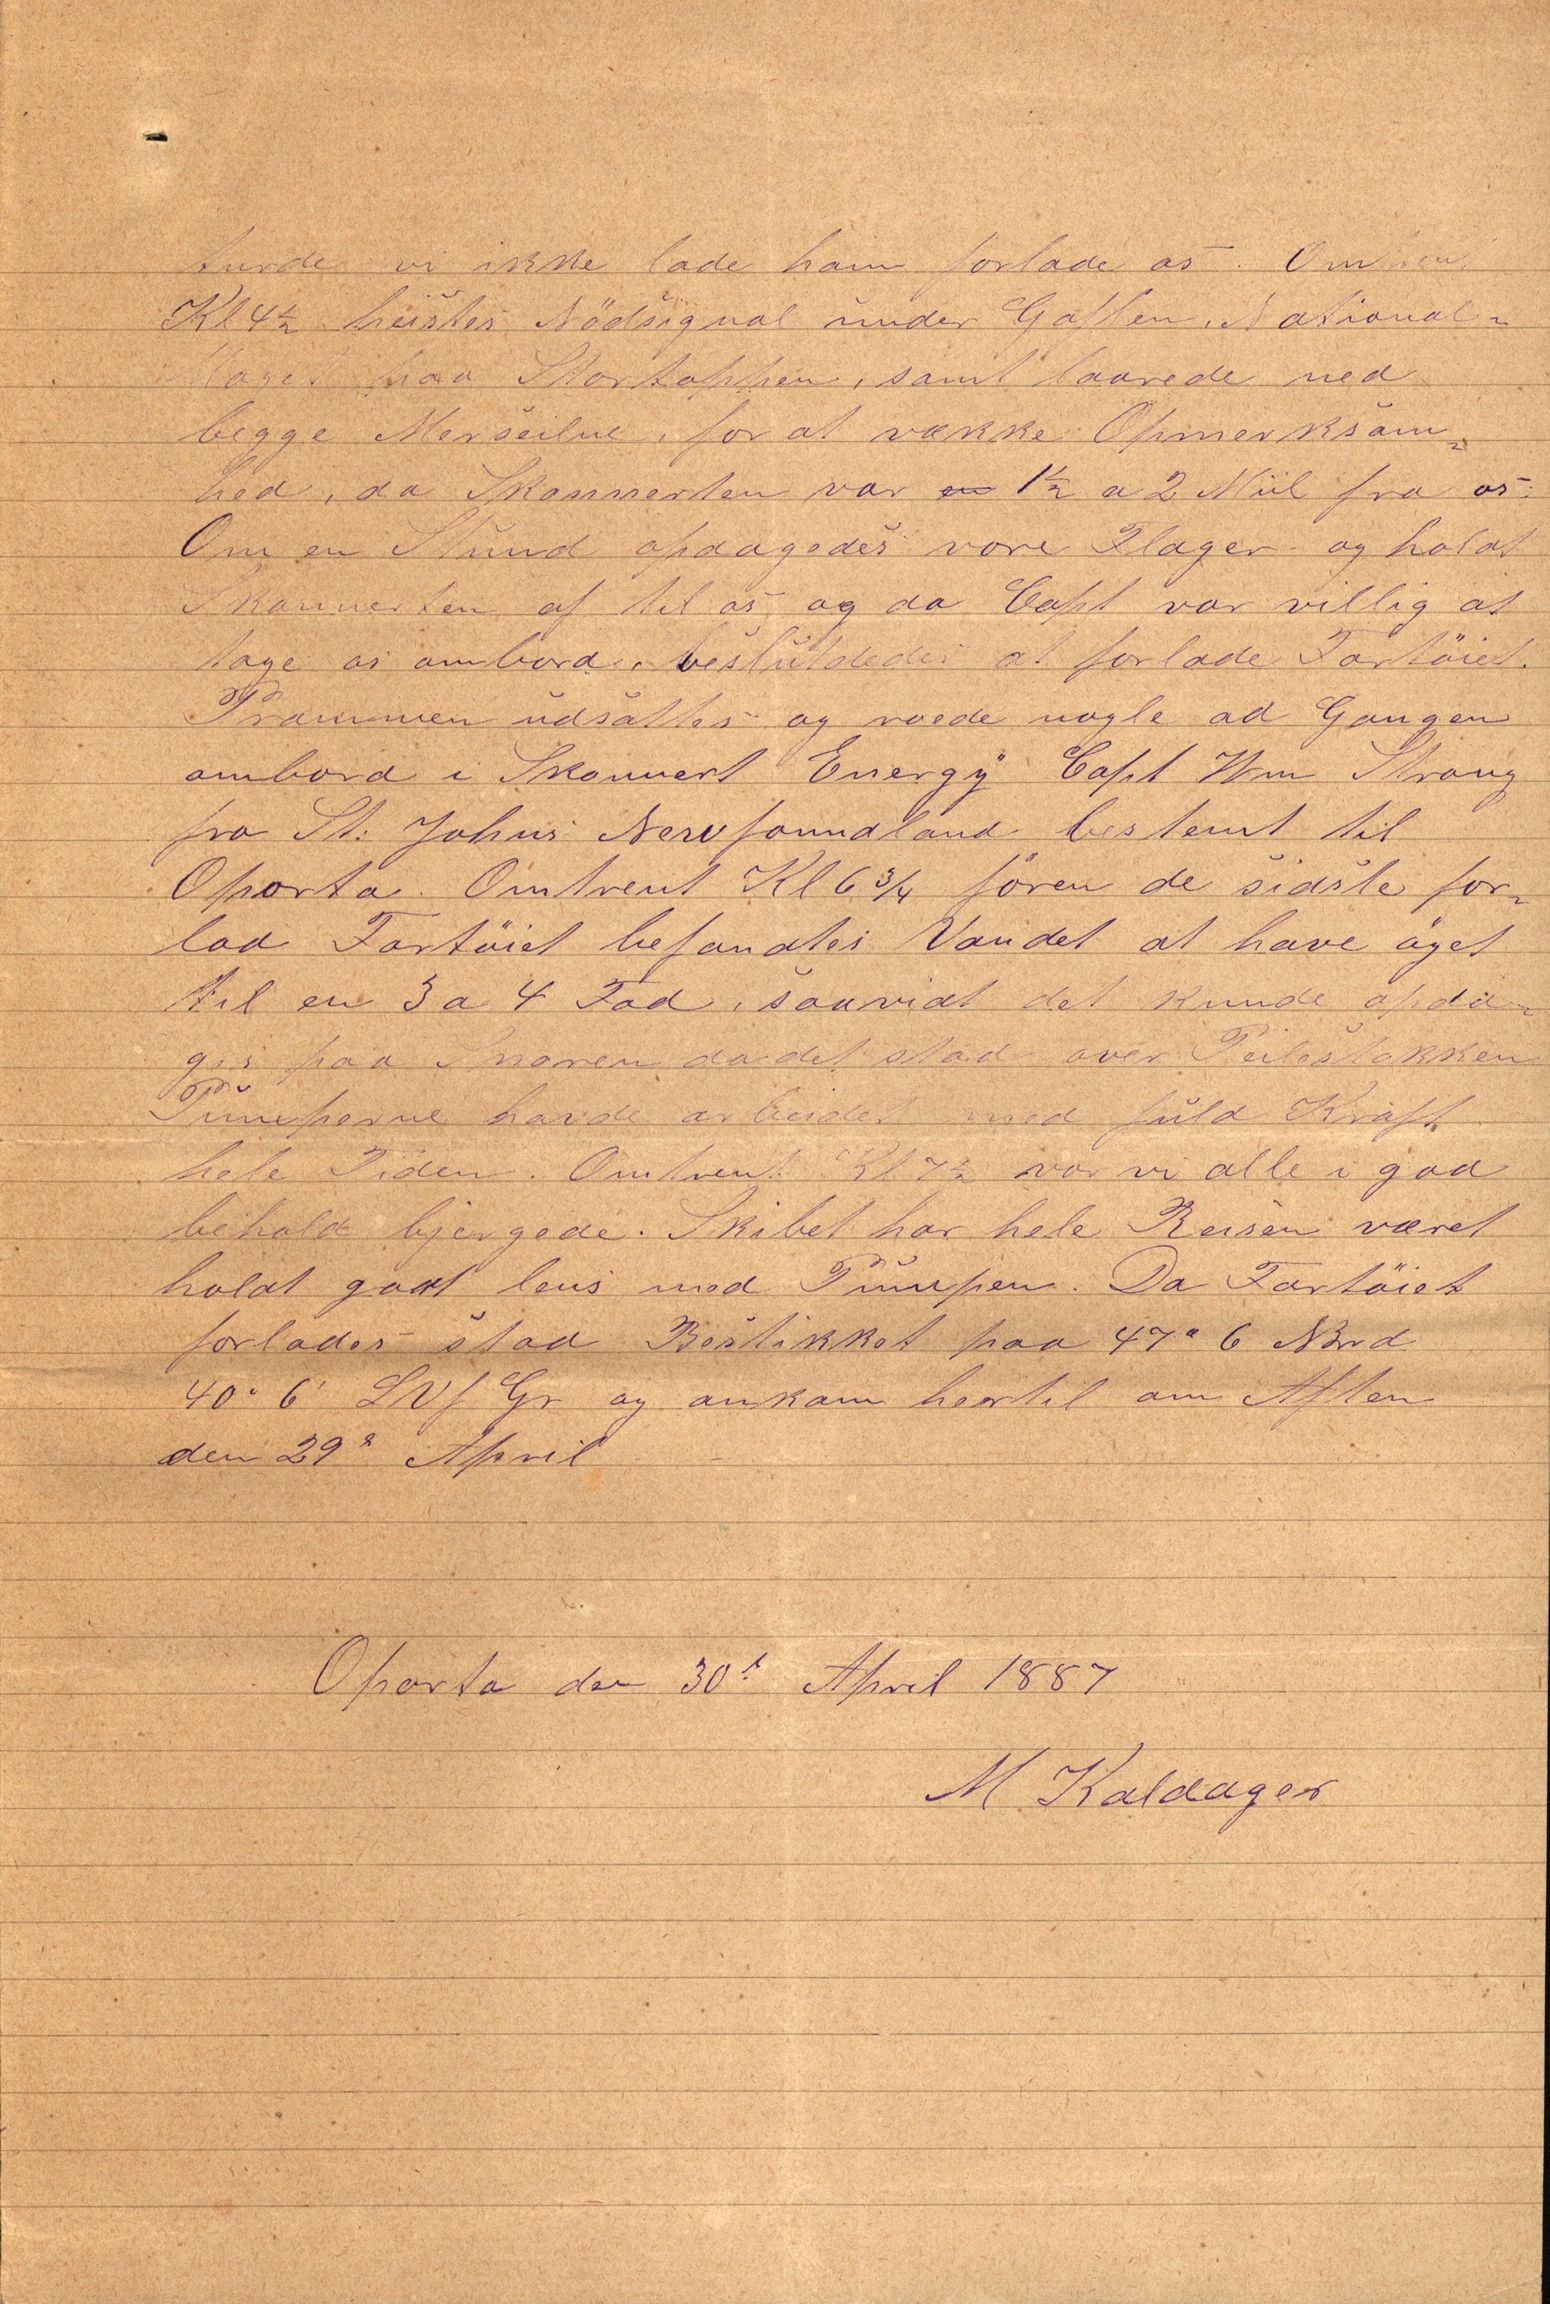 turde vi ikke lade ham forlade os. Omtrent
Kl 4½ heistes Nödsignal under Gaflen, National-
flaget paa Stortoppen, samt laarede ned
begge Merseilne, for at vække Opmerksom-
hed, da Skonnerten var en 1½ a 2 Miil fra os.
Om en Stund opdagedes vore Flager og holdt
Skonnerten af til os og da Capt var villig at
tage os ombord, beslutdedes at forlade Fartöiet.
Prammen udsattes og roede nogle ad Gangen
ombord i Skonnert Energy Capt Wm Strong
fra St: Johns Newfoundland bestemt til
Oporto. Omtrent Kl 6¾ fören de sidste for-
lod Fartöiet befandtes Vandet at have öget
til en 3 a 4 Fod, saavidt det kunde opda-
ges paa Snoren da det stod over Peilestokken
Pumperne havde arbeidet med fuld Kraft
hele Tiden. Omtrent Kl 7½ var vi alle i god
behold bjergede. Skibet har hele Reisen været
holdt godt lens med Pumpen. Da Fartöiet
forlodes stod Bestikket paa 47° 6 Nord
40° 6' LVf Gr og ankom hertil om Aften
den 29de April
Oporto den 30te April 1887
M Kaldager